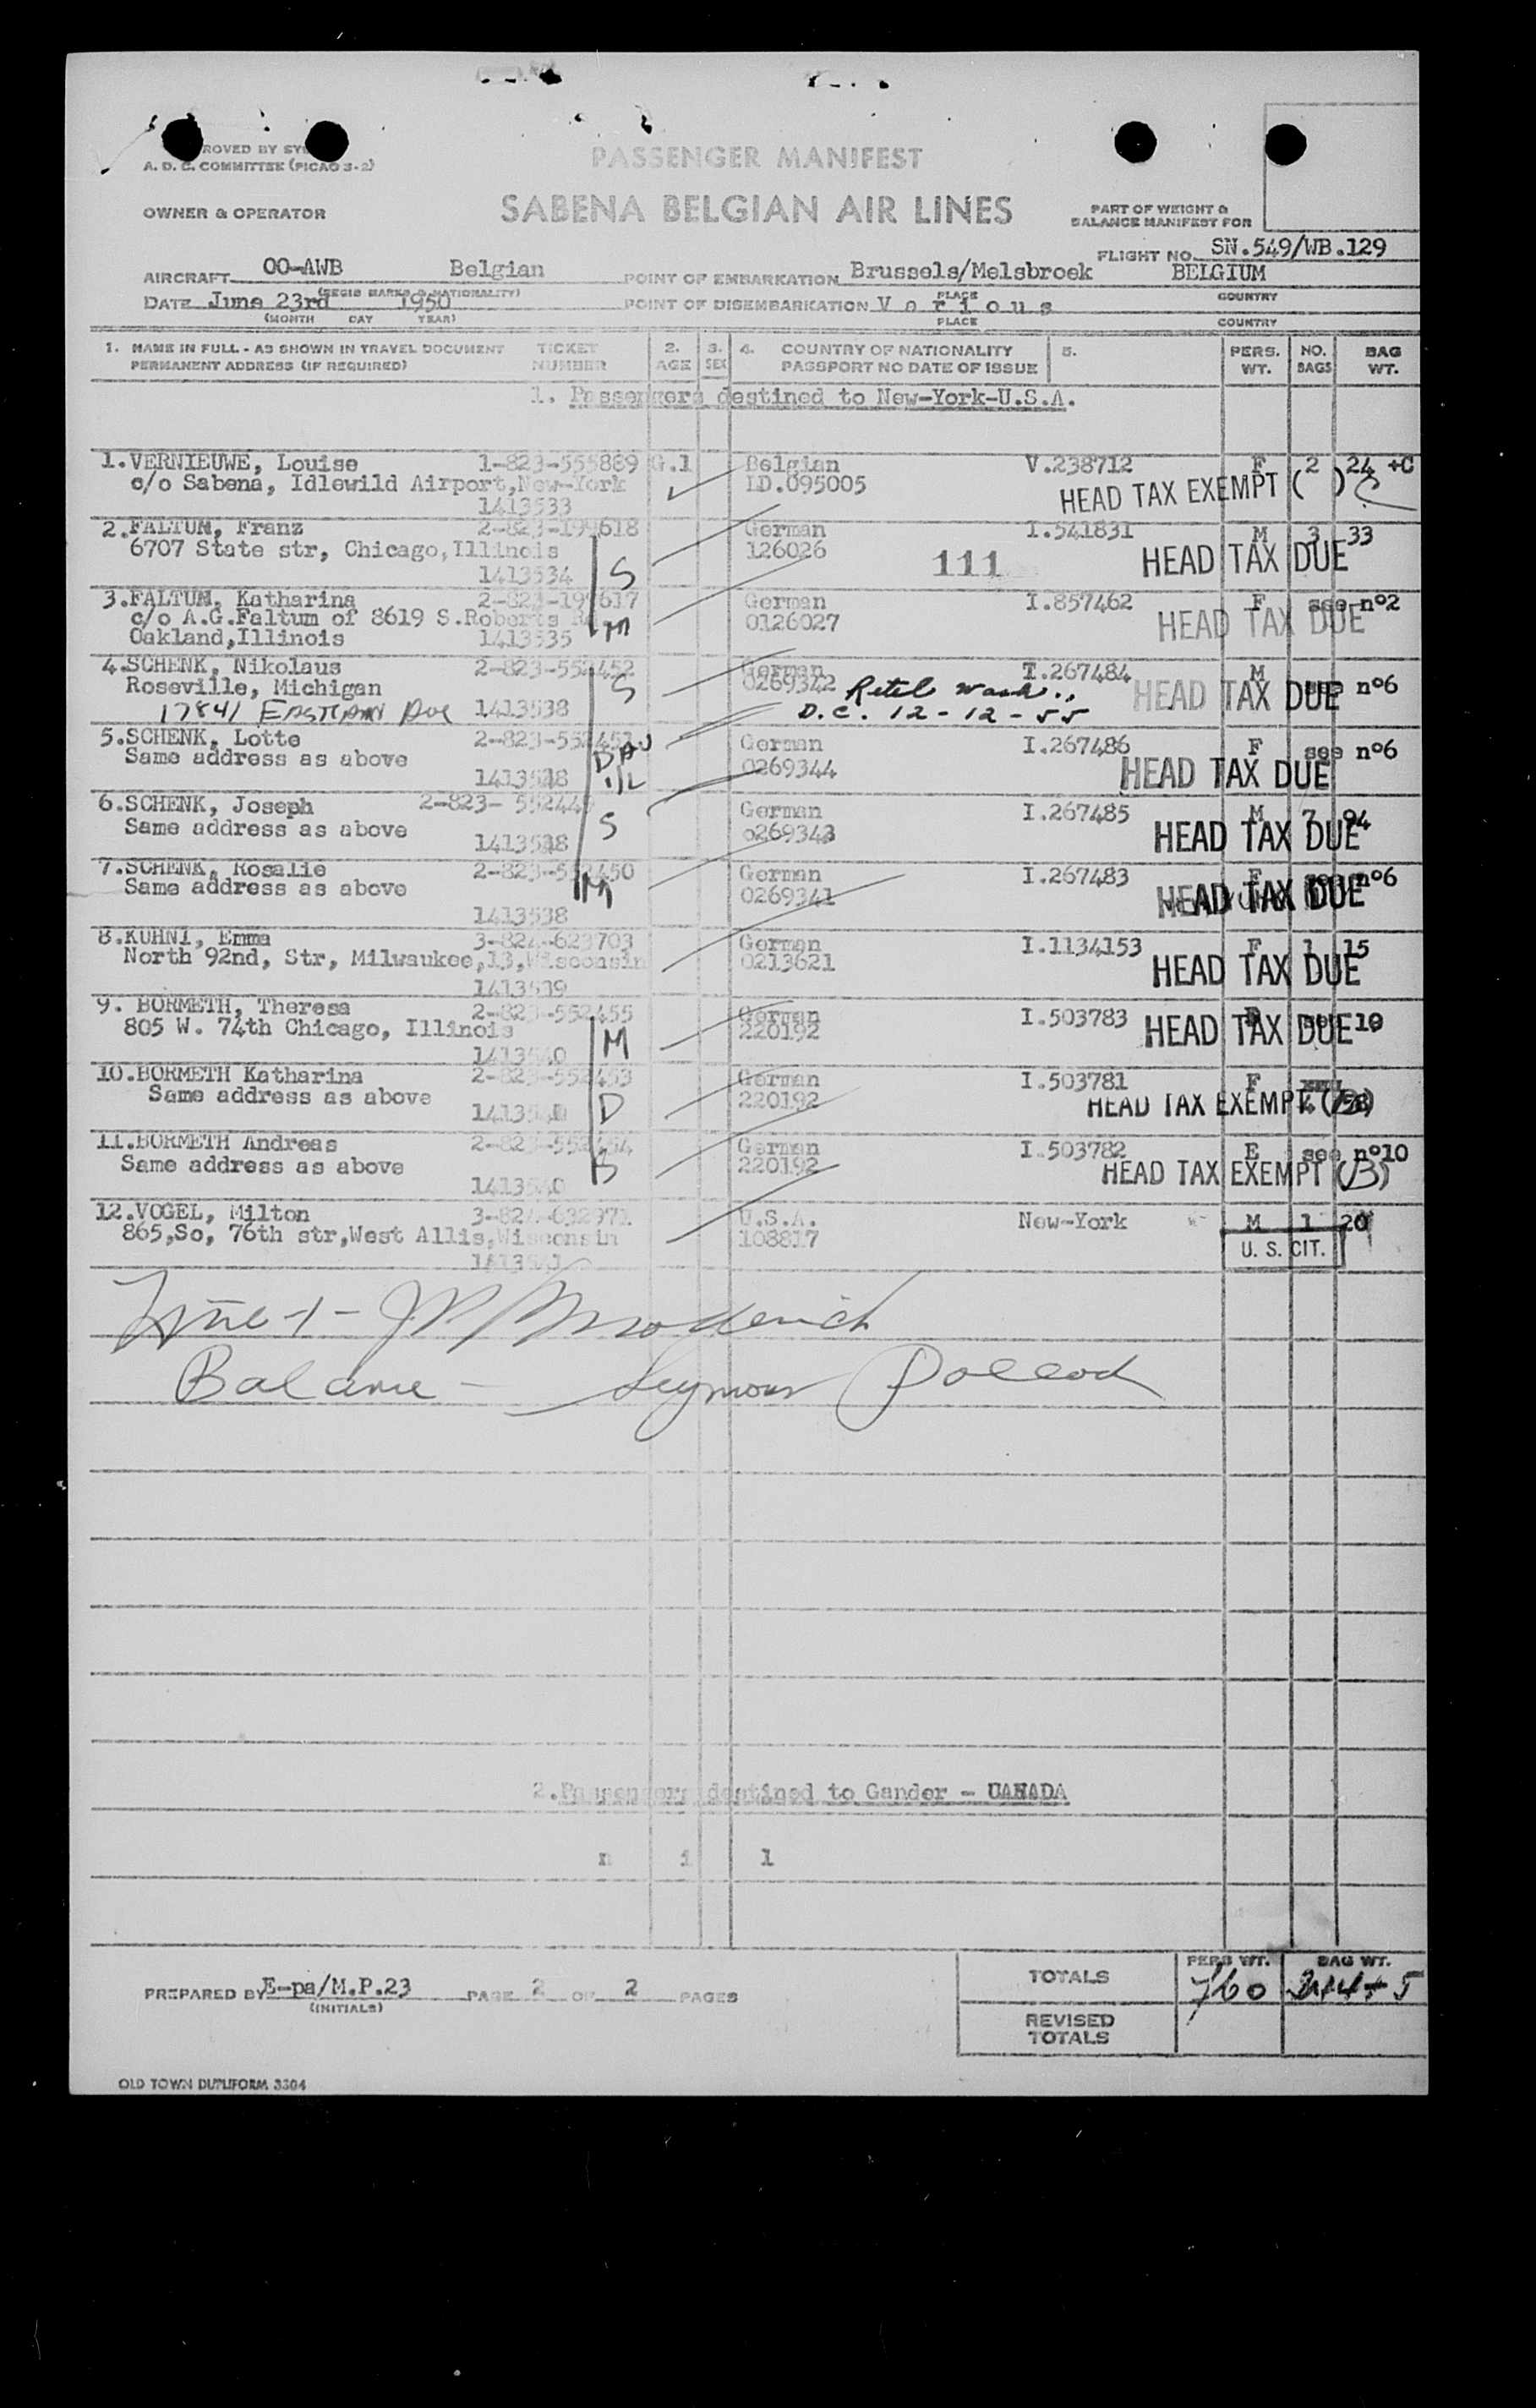 A. D. C. COMMITTEE (PICAO 3-2)
PASSENGER MANIFEST
OWNER & OPERATOR
SABENA BELGIAN AIR LINES
PART OF WEIGHT &
BALANCE MANIFEST FOR
FLIGHT NO. SN.549/WB.129
AIRCRAFT OO-AWB Belgian POINT OF EMBARKATION Brussels/Melsbroek BELGIUM
(REGIS MARKS & NATIONALITY) PLACE COUNTRY
DATE June 23rd 1950 POINT OF DISEMBARKATION V a r i o u s
(MONTH DAY YEAR) PLACE COUNTRY
1. NAME IN FULL - AS SHOWN IN TRAVEL DOCUMENT TICKET 2. 3. 4. COUNTRY OF NATIONALITY 5. PERS. NO. BAG
PERMANENT ADDRESS (IF REQUIRED) NUMBER AGE SEX PASSPORT NO DATE OF ISSUE WT. BAGS WT.
1. Passengers destined to New-York-U.S.A.
1. VERNIEUWE, Louise 1-823-555889 G.1 Belgian V.238712 F 2 24 +C
c/o Sabena, Idlewild Airport,New-York LD.095005 HEAD TAX EXEMPT ( )
1413533
2. FALTUM, Franz 2-823-199618 German I.541831 M 3 33
6707 State str, Chicago,Illinois 126026 111 HEAD TAX DUE
1413534 S
3. FALTUM, Katharina 2-823-199617 German I.857462 F see nº2
c/o A.G.Faltum of 8619 S.Roberts 0126027 HEAD TAX DUE
Oakland,Illinois 1413535 M
4. SCHENK, Nikolaus 2-823-552452 German T.267484 M see nº6
Roseville, Michigan S 0269342 HEAD TAX DUE
17841 1413538 D.C. 12-12-55
5. SCHENK, Lotte German I.267486 F see nº6
Same address as above 0269344 HEAD TAX DUE
6. SCHENK, Joseph German I.267485 M 7 94
Same address as above S 0269343 HEAD TAX DUE
7. SCHENK, Rosalie 2-823-552450 German I.267483 F see nº6
Same address as above M 0269341 HEAD TAX DUE
1413538
8. KUHNI, Emma 3-824-623703 German I.1134153 F 1 15
North 92nd, Str, Milwaukee,13,Wisconsin 0213621 HEAD TAX DUE
1413539
9. BORMETH, Theresa 2-823-552455 German I.503783
805 W. 74th Chicago, Illinois 220192 HEAD TAX DUE
1413540 M
10. BORMETH Katharina 2-823-552453 German I.503781 F
Same address as above 220192 HEAD TAX EXEMPT
D
11. BORMETH Andreas 2-823-552454 German I.503782 see nº10
Same address as above 220192 HEAD TAX EXEMPT (B)
1413540
12. VOGEL, Milton 3-824-632971 U.S.A. New-York M 1 20
865,So, 76th str,West Allis,Wisconsin 108817 U. S. CIT.
Line 1 -
Balance - Seymour
2. Passengers destined to Gander - CANADA
n i l
PERS WT. BAG WT.
TOTALS 760
PREPARED BY E-pa/M.P.23 PAGE 2 OF 2 PAGES
(INITIALS)
REVISED
TOTALS
OLD TOWN DUPLIFORM 3304